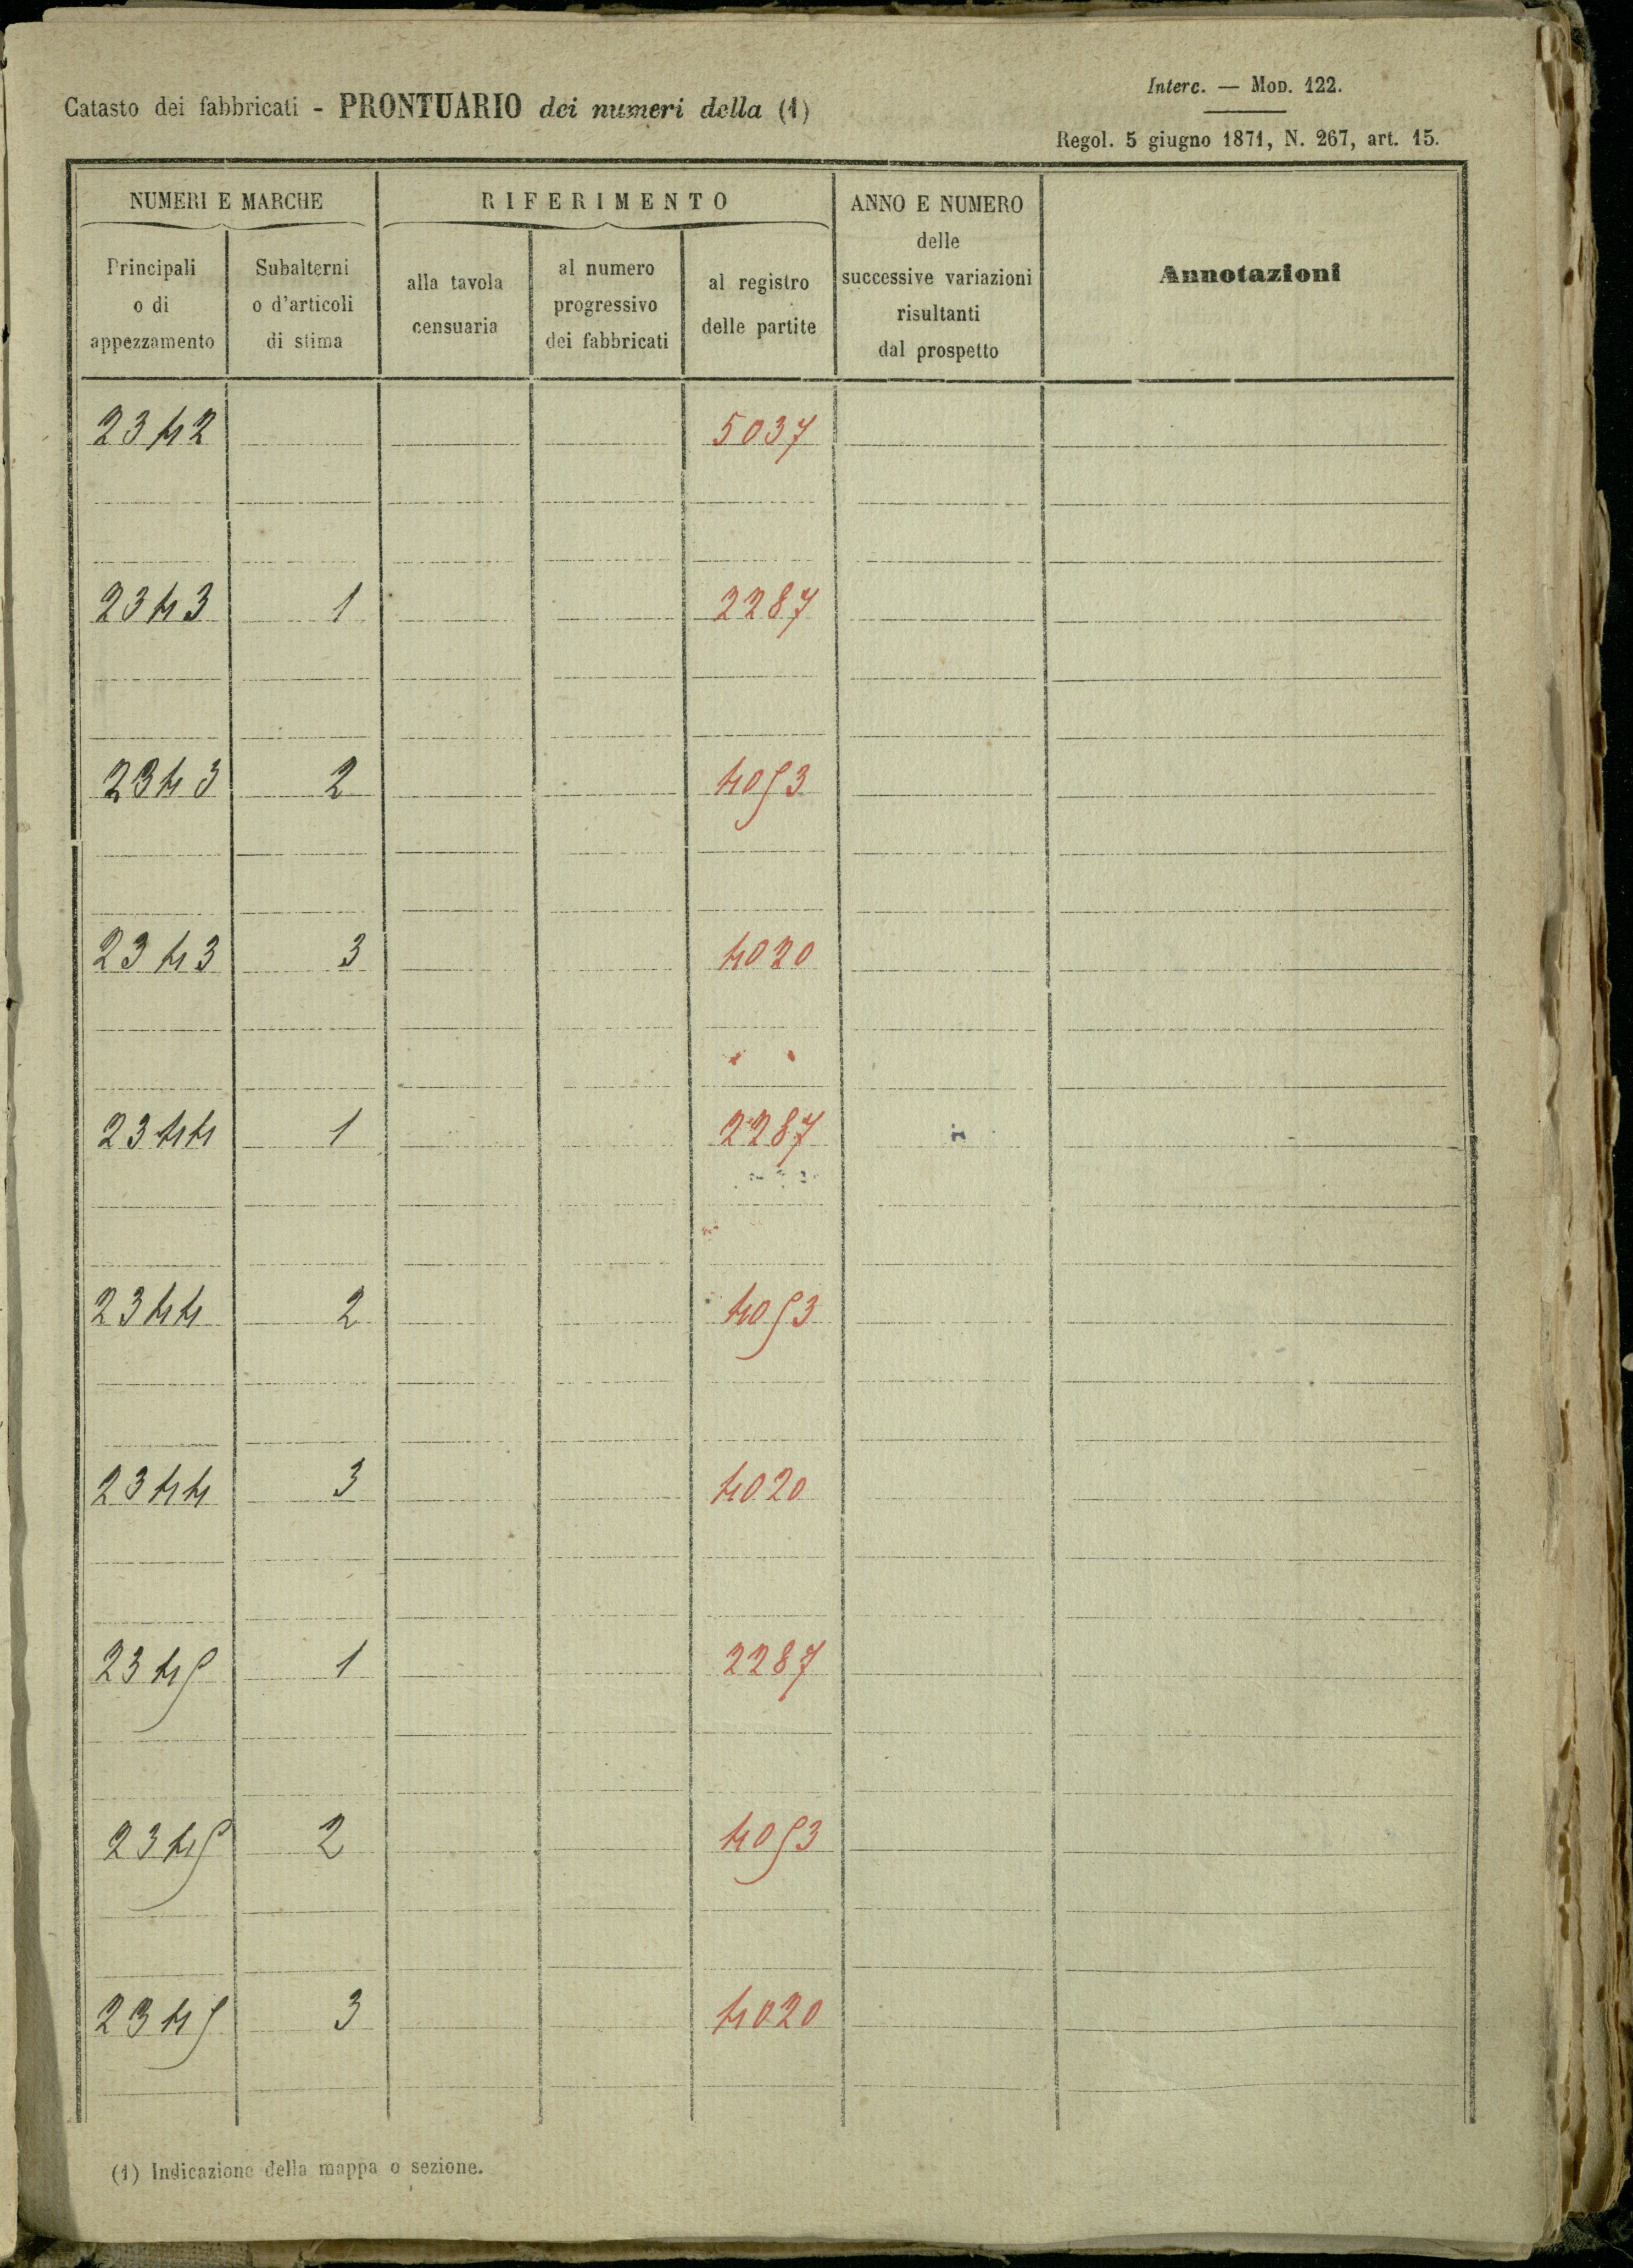 Catasto dei fabbricati - PRONTUARIO dei numeri della (1)
Interc. — Mod. 122.
Regol. 5 giugno 1871, N. 267, art. 15.
NUMERI E MARCHE
RIFERIMENTO
ANNO E NUMERO
delle
successive variazioni
risultanti
dal prospetto
Annotazioni
Principali
o di
appezzamento
Subalterni
o d'articoli
di stima
alla tavola
censuaria
al numero
progressivo
dei fabbricati
al registro
delle partite
2342 5037
2343 1 2287
2343 2 4053
2343 3 4020
2344 1 2287
2344 2 4053
2344 3 4020
2345 1 2287
2345 2 4053
2345 3 4020
(1) Indicazione della mappa o sezione.